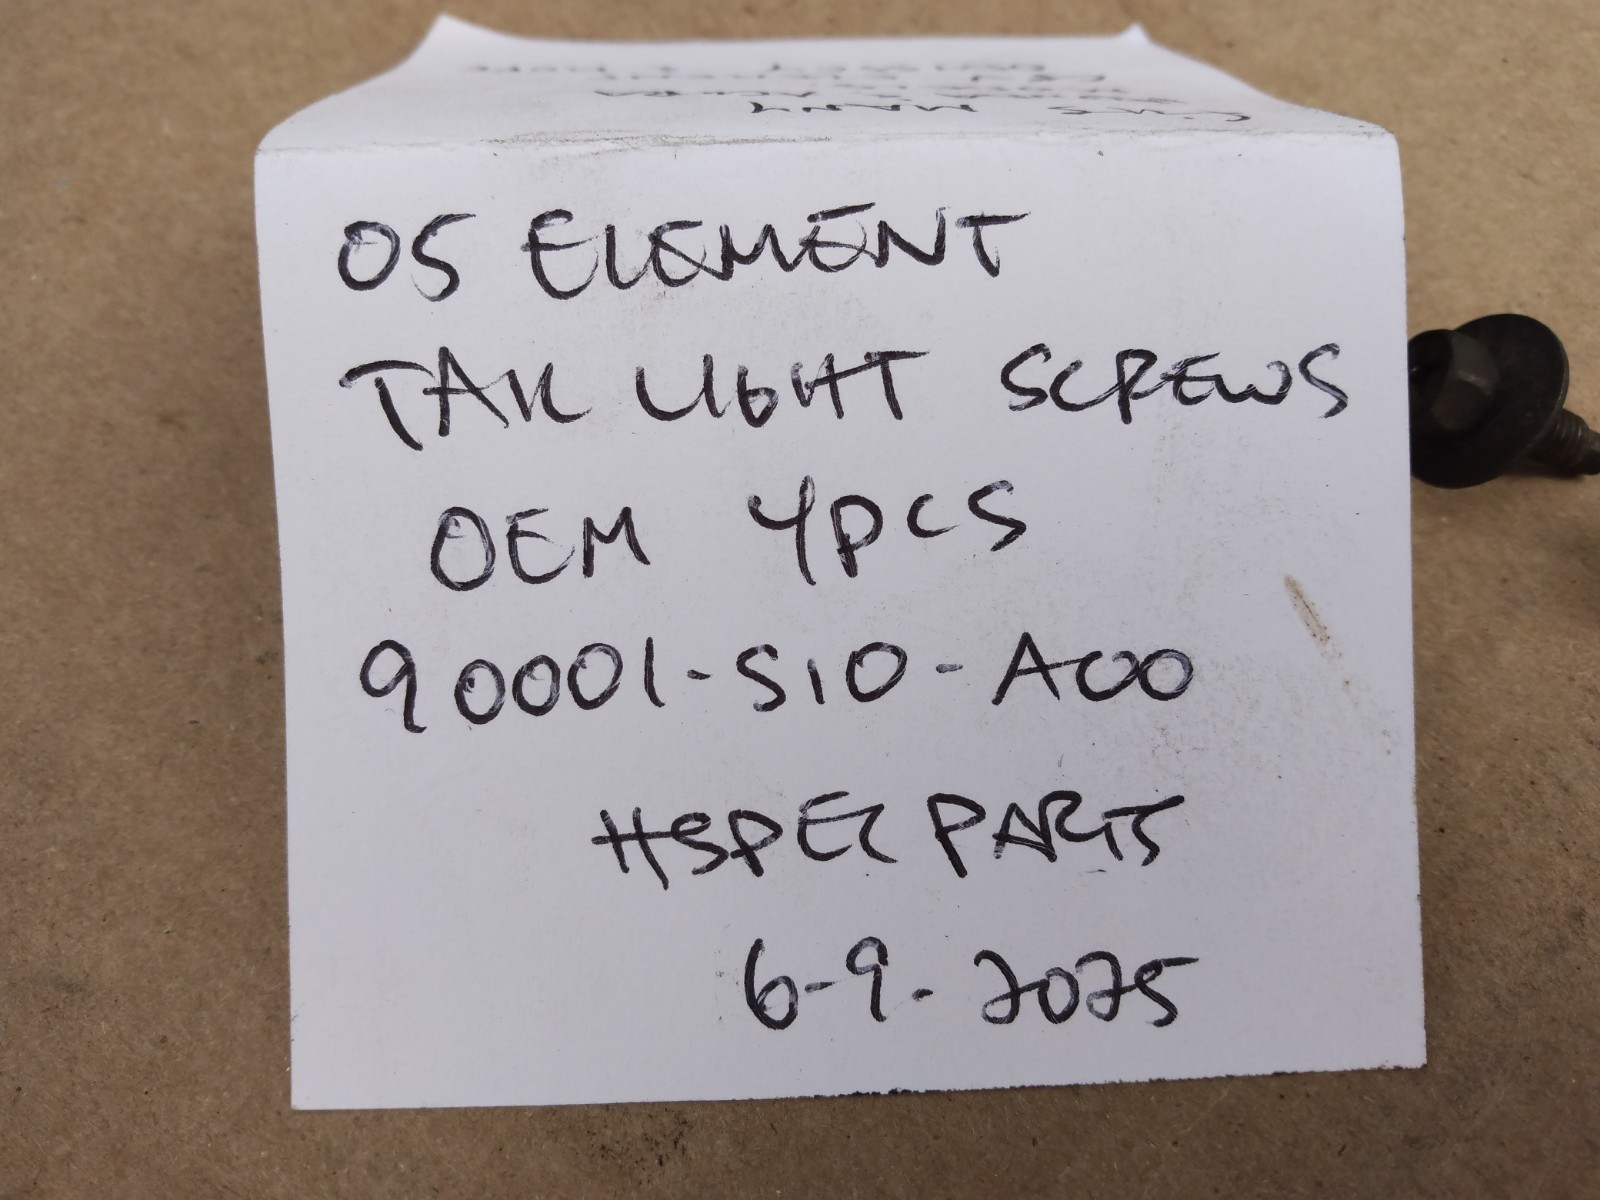 05 ELEMENT
TAIL LIGHT SCREWS
OEM 4PCS
90001-S10-A00
HSPEC PARTS
6-9-2025